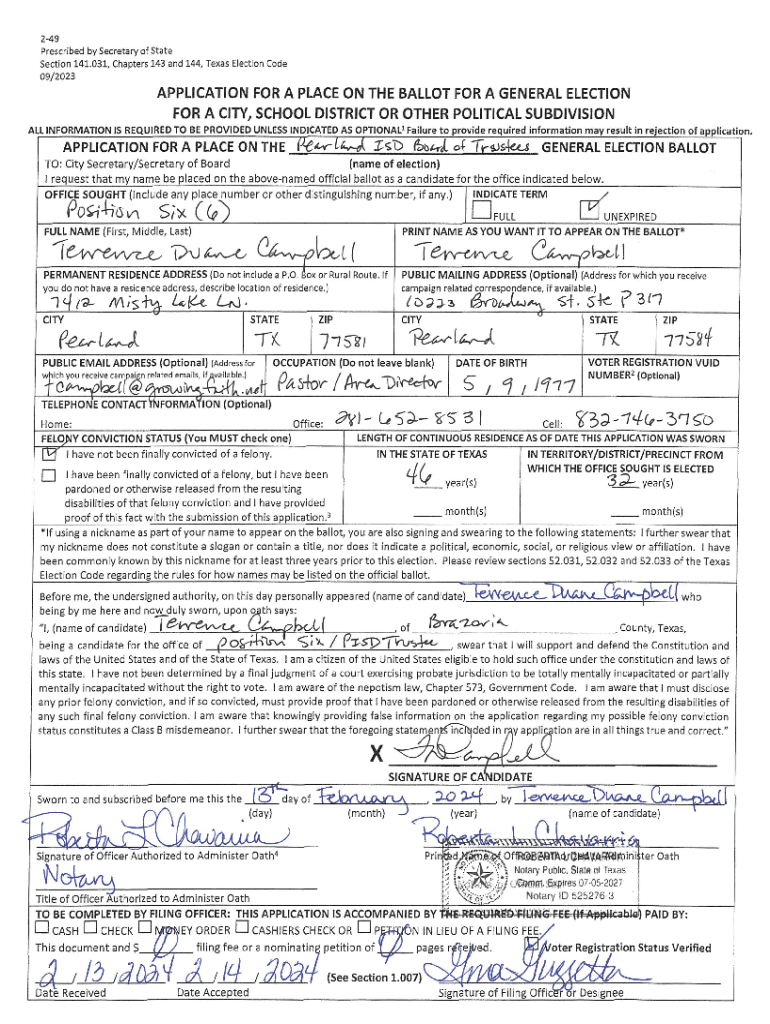 2-49
Prescribed by Secretary of State
Section 141.031, Chapters 143 and 144, Texas Election Code
09/2023
APPLICATION FOR A PLACE ON THE BALLOT FOR A GENERAL ELECTION
FOR A CITY, SCHOOL DISTRICT OR OTHER POLITICAL SUBDIVISION
ALL INFORMATION IS REQUIRED TO BE PROVIDED UNLESS INDICATED AS OPTIONAL¹ Failure to provide required information may result in rejection of application.
APPLICATION FOR A PLACE ON THE Pearland ISD Board of Trustees GENERAL ELECTION BALLOT
TO: City Secretary/Secretary of Board (name of election)
I request that my name be placed on the above-named official ballot as a candidate for the office indicated below.
OFFICE SOUGHT (Include any place number or other distinguishing number, if any.) INDICATE TERM
Position Six (6) FULL UNEXPIRED
FULL NAME (First, Middle, Last) PRINT NAME AS YOU WANT IT TO APPEAR ON THE BALLOT*
Terrence Duane Campbell Terrence Campbell
PERMANENT RESIDENCE ADDRESS (Do not include a P.O. Box or Rural Route. If PUBLIC MAILING ADDRESS (Optional) (Address for which you receive
you do not have a residence address, describe location of residence.) campaign related correspondence, if available.)
7412 Misty Lake Ln. 10223 Broadway St. Ste P 317
CITY STATE ZIP CITY STATE ZIP
Pearland TX 77581 Pearland TX 77584
PUBLIC EMAIL ADDRESS (Optional) (Address for OCCUPATION (Do not leave blank) DATE OF BIRTH VOTER REGISTRATION VUID
which you receive campaign related emails, if available.) NUMBER² (Optional)
tcampbell@growingfaith.net Pastor/Area Director 5, 9, 1977
TELEPHONE CONTACT INFORMATION (Optional)
Home: Office: 281-652-8531 Cell: 832-746-3750
FELONY CONVICTION STATUS (You MUST check one) LENGTH OF CONTINUOUS RESIDENCE AS OF DATE THIS APPLICATION WAS SWORN
I have not been finally convicted of a felony. IN THE STATE OF TEXAS IN TERRITORY/DISTRICT/PRECINCT FROM
WHICH THE OFFICE SOUGHT IS ELECTED
I have been finally convicted of a felony, but I have been 46 year(s) 32 year(s)
pardoned or otherwise released from the resulting
disabilities of that felony conviction and I have provided month(s) month(s)
proof of this fact with the submission of this application.³
*If using a nickname as part of your name to appear on the ballot, you are also signing and swearing to the following statements: I further swear that
my nickname does not constitute a slogan or contain a title, nor does it indicate a political, economic, social, or religious view or affiliation. I have
been commonly known by this nickname for at least three years prior to this election. Please review sections 52.031, 52.032 and 52.033 of the Texas
Election Code regarding the rules for how names may be listed on the official ballot.
Before me, the undersigned authority, on this day personally appeared (name of candidate) Terrence Duane Campbell who
being by me here and now duly sworn, upon oath says:
"I, (name of candidate) Terrence Campbell, of Brazoria County, Texas,
being a candidate for the office of Position Six / PISD Trustee, swear that I will support and defend the Constitution and
laws of the United States and of the State of Texas. I am a citizen of the United States eligible to hold such office under the constitution and laws of
this state. I have not been determined by a final judgment of a court exercising probate jurisdiction to be totally mentally incapacitated or partially
mentally incapacitated without the right to vote. I am aware of the nepotism law, Chapter 573, Government Code. I am aware that I must disclose
any prior felony conviction, and if so convicted, must provide proof that I have been pardoned or otherwise released from the resulting disabilities of
any such final felony conviction. I am aware that knowingly providing false information on the application regarding my possible felony conviction
status constitutes a Class B misdemeanor. I further swear that the foregoing statements included in my application are in all things true and correct."
X Campbell
SIGNATURE OF CANDIDATE
Sworn to and subscribed before me this the 13th day of February, 2024, by Terrence Duane Campbell
(day) (month) (year) (name of candidate)
Roberta L Chavarria Roberta L. Chavarria
Signature of Officer Authorized to Administer Oath⁴ Printed Name of Officer Authorized to Administer Oath
ROBERTA L CHAVARRIA
Notary Notary Public, State of Texas
Comm. Expires 07-05-2027
Notary ID 525276-3
Title of Officer Authorized to Administer Oath
TO BE COMPLETED BY FILING OFFICER: THIS APPLICATION IS ACCOMPANIED BY THE REQUIRED FILING FEE (If Applicable) PAID BY:
CASH CHECK MONEY ORDER CASHIERS CHECK OR PETITION IN LIEU OF A FILING FEE.
This document and $ 0 filing fee or a nominating petition of 0 pages received. Voter Registration Status Verified
2, 13, 2024 2, 14, 2024 (See Section 1.007)
Date Received Date Accepted Signature of Filing Officer or Designee